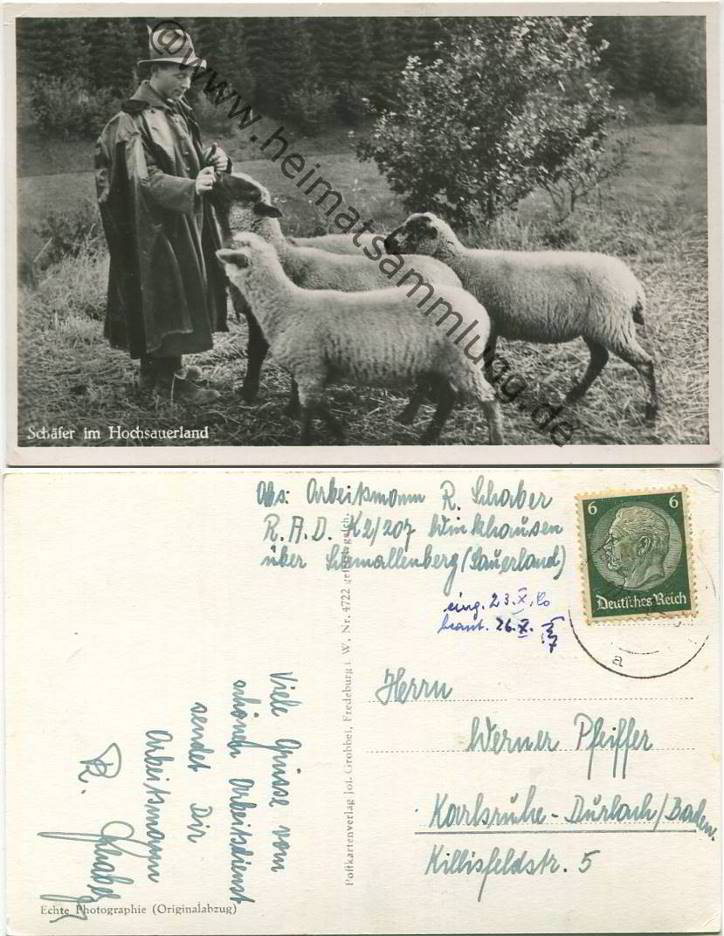 @www.heimatsammlung.de
Schäfer im Hochsauerland
Abs: Arbeitsmann R. Schaber
R.A.D. K2/207 Winkhausen
über Schmallenberg (Sauerland)
6 6
Deutsches Reich
a
eing. 23.X.
beant. 26.X.
Herrn
Werner Pfeiffer
Karlsruhe-Durlach/Baden.
Killisfeldstr. 5
Postkartenverlag Jos. Grobbel, Fredeburg i. W. Nr. 4722 gesetzl. gesch.
Viele Grüsse vom
schönen Arbeitsdienst
sendet Dir
Arbeitsmann
R. Schaber
Echte Photographie (Originalabzug)